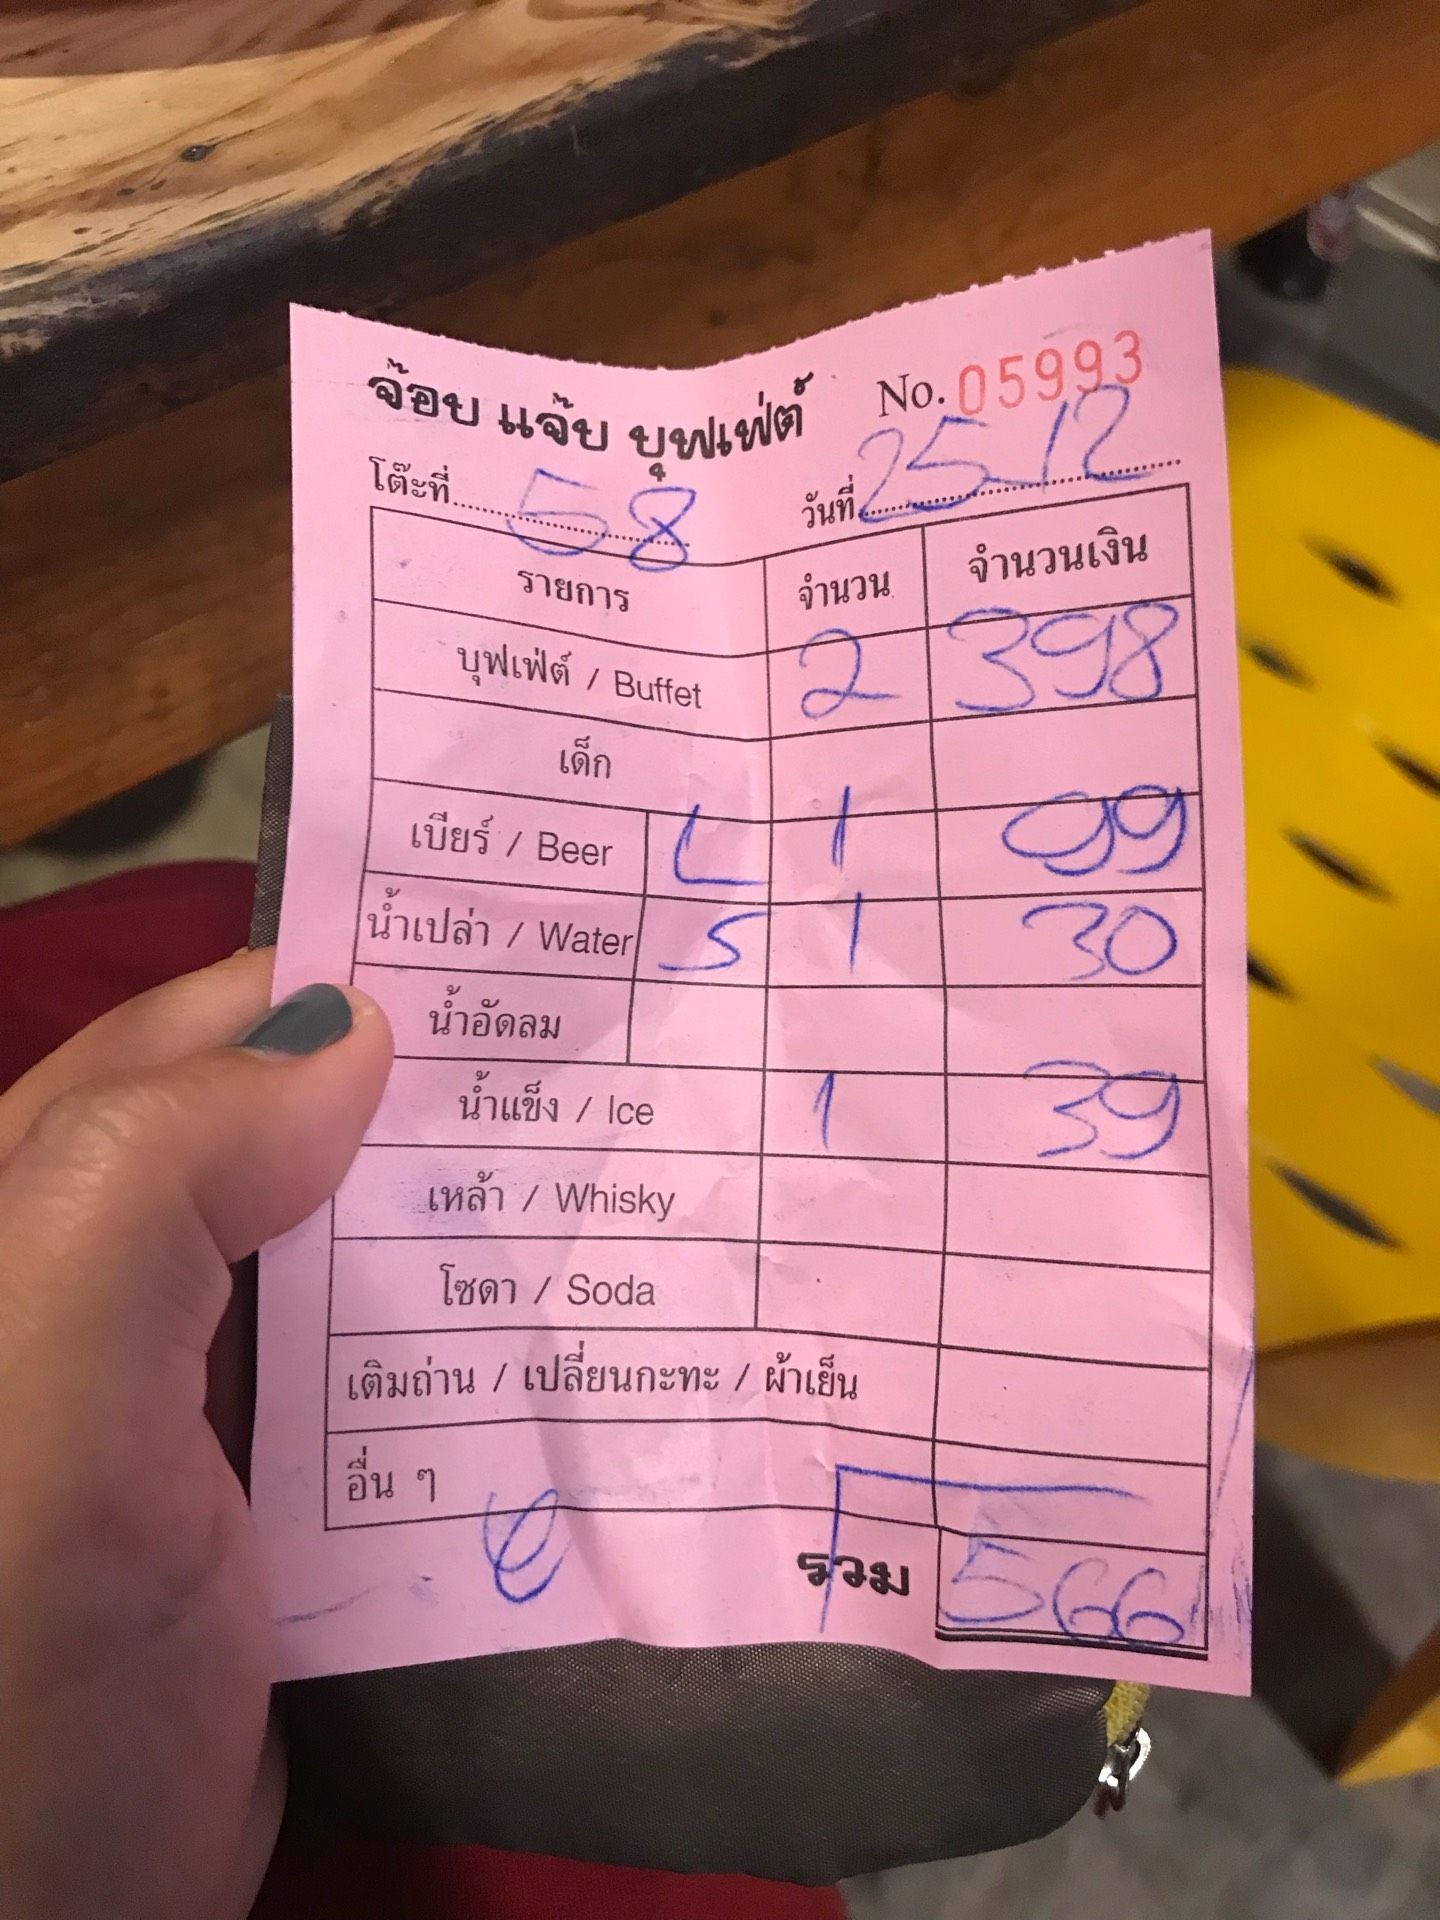 จ๊อบ แจ๊บ บุฟเฟ่ต์ No. 05993
โต๊ะที่ 58 วันที่ 25-12
รายการ จำนวน จำนวนเงิน
บุฟเฟ่ต์ / Buffet 2 398
เด็ก
เบียร์ / Beer L 1 99
น้ำเปล่า / Water S 1 30
น้ำอัดลม
น้ำแข็ง / Ice 1 39
เหล้า / Whisky
โซดา / Soda
เติมถ่าน / เปลี่ยนกะทะ / ผ้าเย็น
อื่น ๆ
รวม 566